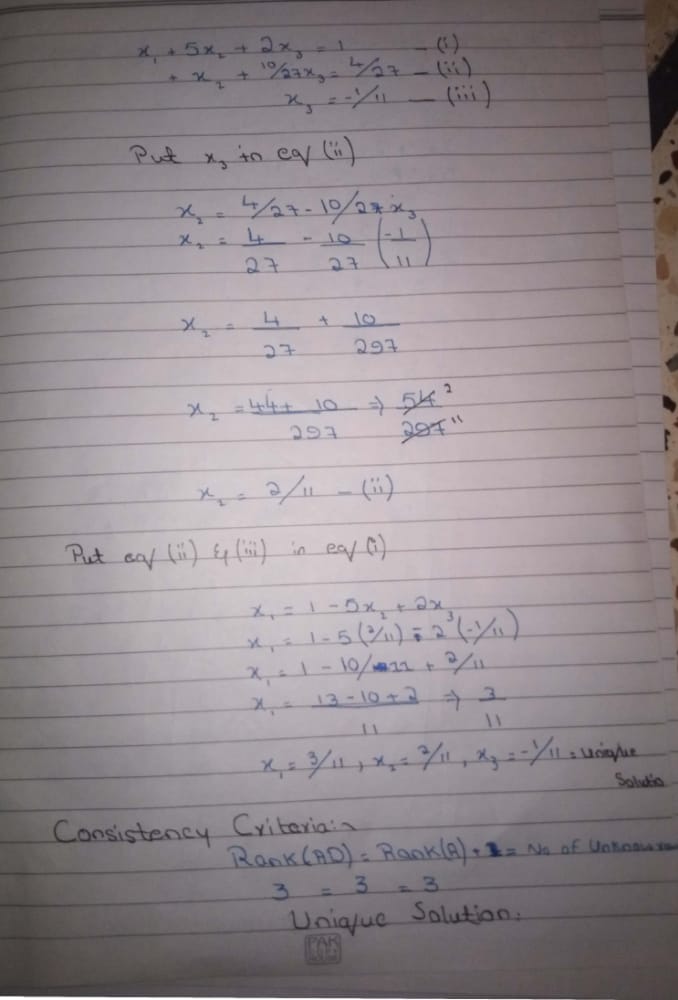 x₁ + 5x₂ + 2x₃ = 1 — (i)
+ x₂ + 10/27x₃ = 4/27 — (ii)
x₃ = -1/11 — (iii)
Put x₃ in eq (ii)
x₂ = 4/27 - 10/27 x₃
x₂ = 4/27 - 10/27 (-1/11)
x₂ = 4/27 + 10/297
x₂ = 44 + 10/297 ⇒ 54²/297¹¹
x₂ = 2/11 — (ii)
Put eq (ii) & (iii) in eq (i)
x₁ = 1 - 5x₂ + 2x₃
x₁ = 1 - 5(2/11) - 2(-1/11)
x₁ = 1 - 10/11 + 2/11
x₁ = 13 - 10 + 2/11 ⇒ 3/11
x₁ = 3/11, x₂ = 2/11, x₃ = -1/11 = Unique
Solutio
Consistency Criteria:
Rank(AD) = Rank(A) = No of
3 = 3 = 3
Unique Solution.
PAK